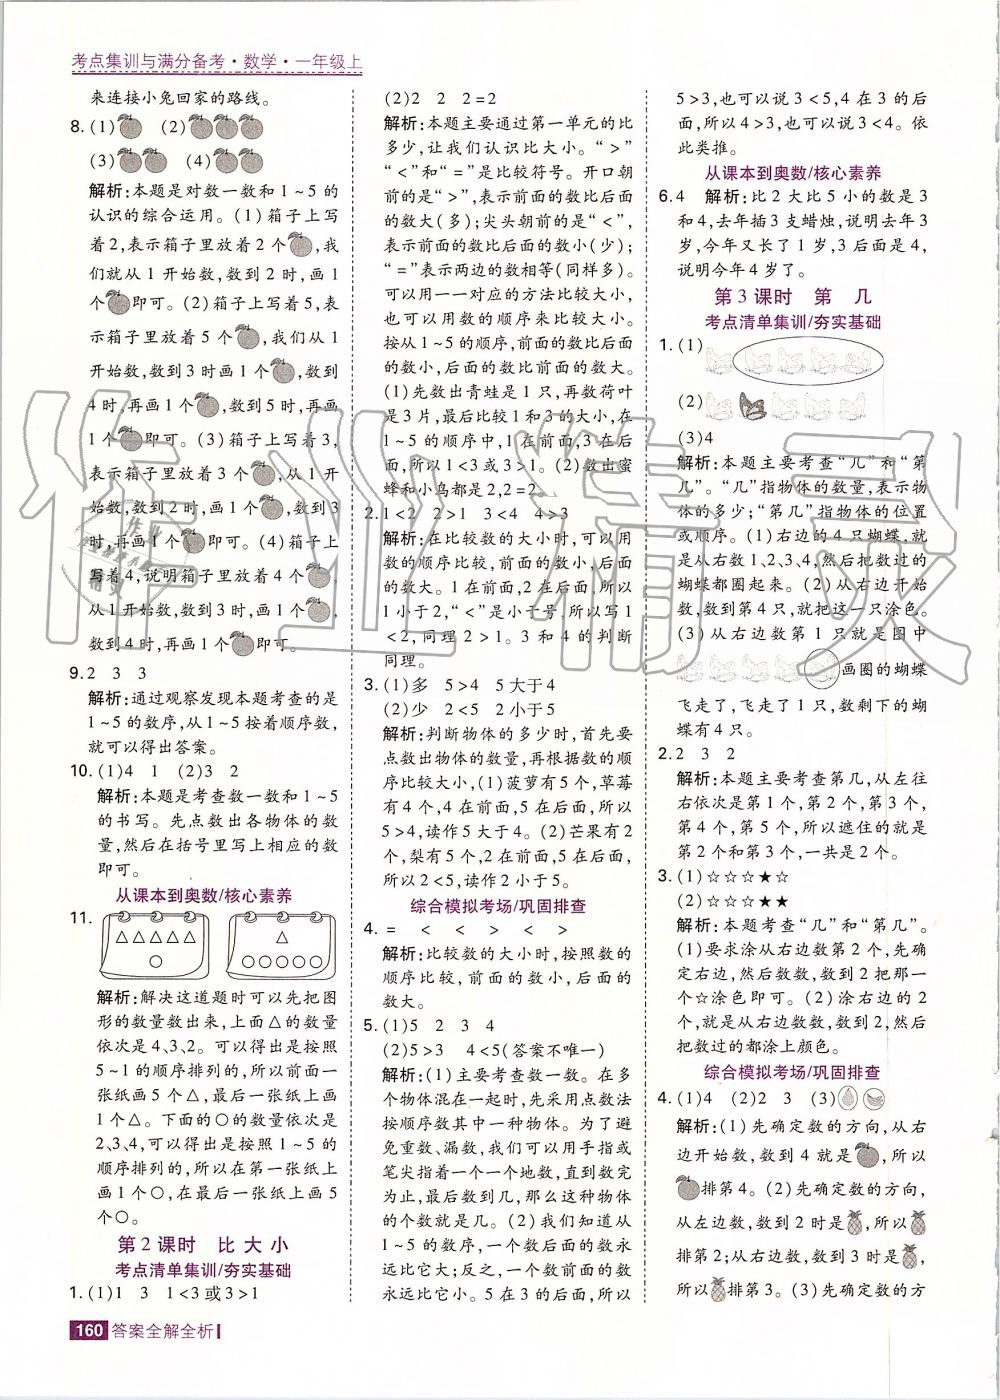 考点集训与满分备考·数学·一年级上
来连接小兔回家的路线。
8.(1) (2)
(3) (4)
解析:本题是对数一数和1~5的
认识的综合运用。(1)箱子上写
着2,表示箱子里放着2个,我
们就从1开始数,数到2时,画1
个即可。(2)箱子上写着5,表
示箱子里放着5个,从1
开始数,数到3时画1个,数到
4时,再画1个,数到5时,再画
1个即可。(3)箱子上写着3,
表示箱子里放着3个,从1开
始数,数到2时,画1个,数到3
时,再画1个即可。(4)箱子上
写着4,说明箱子里放着4个,
从1开始数,数到3时,画1个,
数到4时,再画1个即可。
9.2 3 3
解析:通过观察发现本题考查的是
1~5的数序,从1~5按着顺序数,
就可以得出答案。
10.(1)4 1 (2)3 2
解析:本题是考查数一数和1~5
的书写。先点数出各物体的数
量,然后在括号里写上相应的数
即可。
从课本到奥数/核心素养
11. △△△△△ △
○ ○○○○○
解析:解决这道题时可以先把图
形的数量数出来,上面△的数量
依次是4、3、2。可以得出是按照
5~1的顺序排列的,所以前面一
张纸画5个△,最后一张纸上画
1个△。下面的○的数量依次是
2、3、4,可以得出是按照1~5的
顺序排列的,所以在第一张纸上
画1个○,在最后一张纸上画5
个○。
第2课时 比大小
考点清单集训/夯实基础
1.(1)1 3 1<3或3>1
(2)2 2 2=2
解析:本题主要通过第一单元的比
多少,让我们认识比大小。“>”
“<”和“=”是比较符号。开口朝
前的是“>”,表示前面的数比后面
的数大(多);尖头朝前的是“<”,
表示前面的数比后面的数小(少);
“=”表示两边的数相等(同样多)。
可以用一一对应的方法比较大小,
也可以用数的顺序来比较大小。
按从1~5的顺序,前面的数比后面
的数小,后面的数比前面的数大。
(1)先数出青蛙是1只,再数荷叶
是3片,最后比较1和3的大小,在
1~5的顺序中,1在前面,3在后
面,所以1<3或3>1。(2)数出蜜
蜂和小鸟都是2,2=2。
2.1<2 2>1 3<4 4>3
解析:在比较数的大小时,可以用
数的顺序比较,前面的数小,后面
的数大。1在前面,2在后面,所以
1小于2,“<”是小于号,所以写1
<2,同理2>1。3和4的判断
同理。
3.(1)多 5>4 5大于4
(2)少 2<5 2小于5
解析:判断物体的多少时,首先要
点数出物体的数量,再根据数的顺
序比较大小,(1)菠萝有5个,草莓
有4个,4在前面,5在后面,所以
5>4,读作5大于4。(2)芒果有2
个,梨有5个,2在前面,5在后面,
所以2<5,读作2小于5。
综合模拟考场/巩固排查
4.= < < > < >
解析:比较数的大小时,按照数的
顺序比较,前面的数小,后面的
数大。
5.(1)5 2 3 4
(2)5>3 4<5(答案不唯一)
解析:(1)主要考查数一数。在多
个物体混在一起时,先采用点数法
按顺序数其中一种物体。为了避
免重数、漏数,我们可以用手指或
笔尖指着一个一个地数,直到数完
为止,最后数到几,那么这种物体
的个数就是几。(2)我们知道从
1~5的数中,一个数后面的数永
远比它大;反之,一个数前面的数
永远比它小。5在3的后面,所以
5>3,也可以说3<5,4在3的后
面,所以4>3,也可以说3<4。依
此类推。
从课本到奥数/核心素养
6.4 解析:比2大比5小的数是3
和4,去年插3支蜡烛,说明去年3
岁,今年又长了1岁,3后面是4,
说明今年4岁了。
第3课时 第几
考点清单集训/夯实基础
1.(1)
(2)
(3)4
解析:本题主要考查“几”和“第
几”。“几”指物体的数量,表示物
体的多少;“第几”指物体的位置
或顺序。(1)右边的4只蝴蝶,就
是从右数1、2、3、4,然后把数过的
蝴蝶都圈起来。(2)从右边开始
数,数到第4只,就把这一只涂色。
(3)从右边数第1只就是图中
画圈的蝴蝶
飞走了,飞走了1只,数剩下的蝴
蝶有4只。
2.2 3 2
解析:本题主要考查第几,从左往
右依次是第1个,第2个,第3个,
第4个,第5个,所以遮住的就是
第2个和第3个,一共是2个。
3.(1)☆☆☆★☆
(2)☆☆☆★★
解析:本题考查“几”和“第几”。
(1)要求涂从右边数第2个,先确
定右边,然后数数,数到2把那一
个☆涂色即可。(2)涂右边的2
个,就是从右边数数,数到2,然后
把数过的都涂上颜色。
综合模拟考场/巩固排查
4.(1)4 (2)2 3 (3)
解析:(1)先确定数的方向,从右
边开始数,数到4就是,所以
排第4。(2)先确定数的方向,
从左边数,数到2时是,所以
排第2;从右边数,数到3时是,
所以排第3。(3)先确定数的方
160 答案全解全析
作业精灵